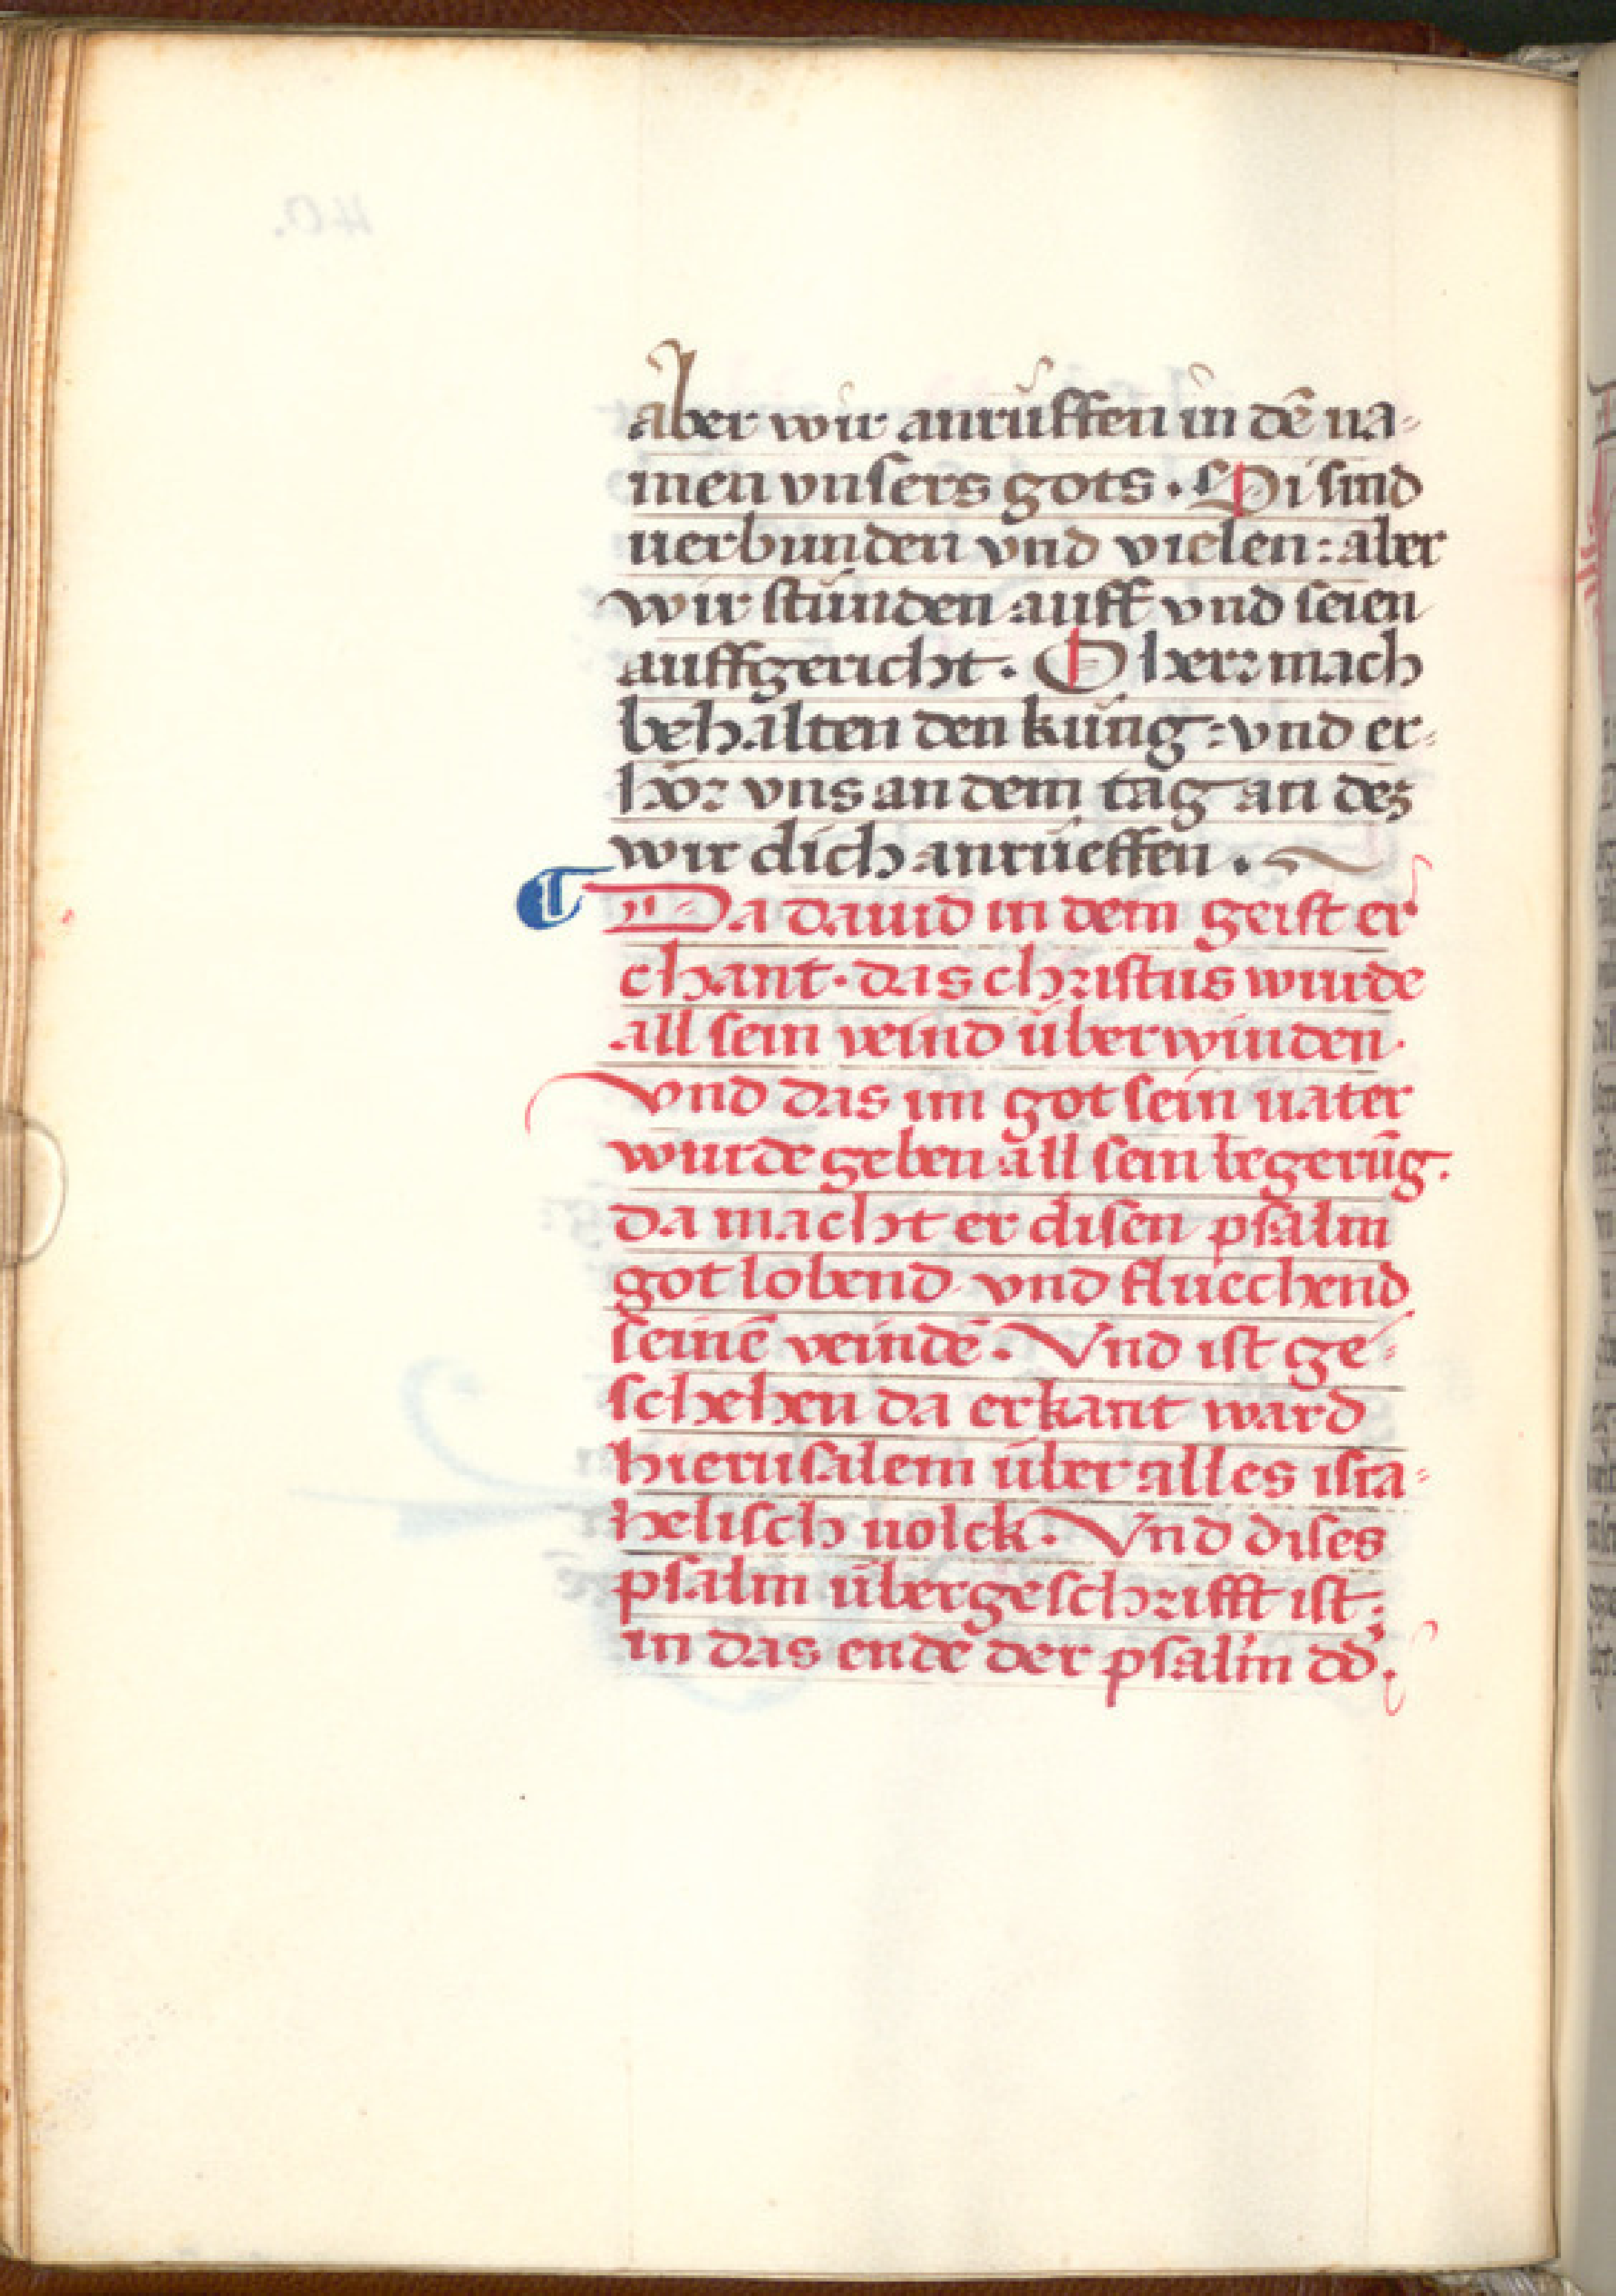 aber wir anrůffen in dē na⸗
men vnsers gots. Si sind
uerbunden vnd vielen: aber
wir stůnden auff vnd seien
auffgericht. O herr mach
behalten den kůng: vnd er⸗
hör vns an dem tag an dez
wir dich anrüeffen.
Da dauid in dem geist er
chant. das christus wurde
all sein veind überwinden.
vnd das im got sein uater
wurde geben all sein begerūg.
da macht er disen psalm
got lobend vnd fluechend
seinē veindē. Vnd ist ge⸗
schehen da erkant ward
hierusalem über alles isra⸗
helisch uolck. Vnd dises
psalm übergeschrifft ist:
in das ende der psalm dd.